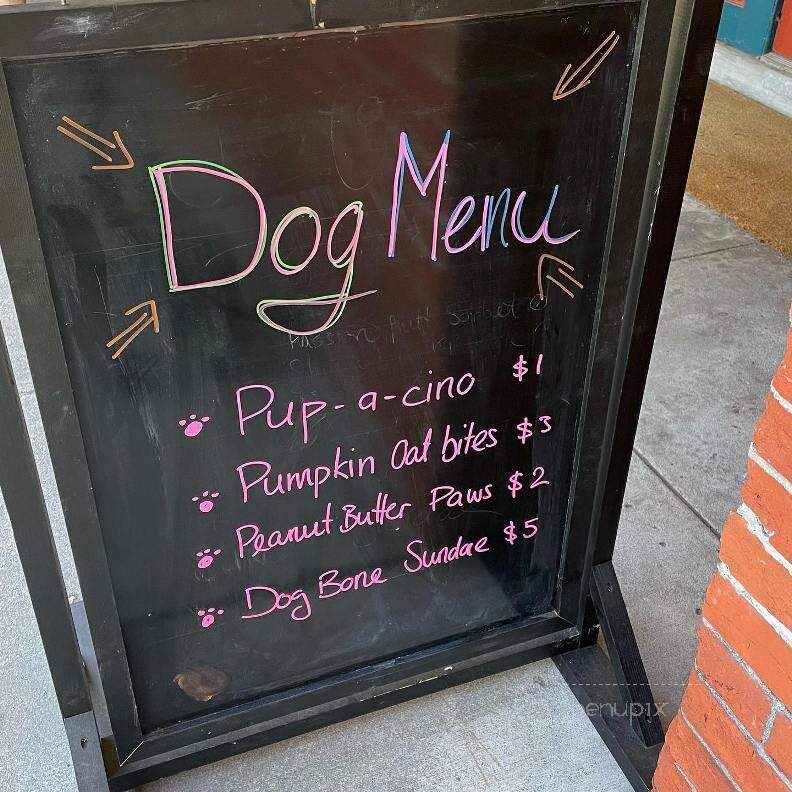 Dog Menu
Pup-a-cino $1
Pumpkin Oat bites $3
Peanut Butter Paws $2
Dog Bone Sundae $5